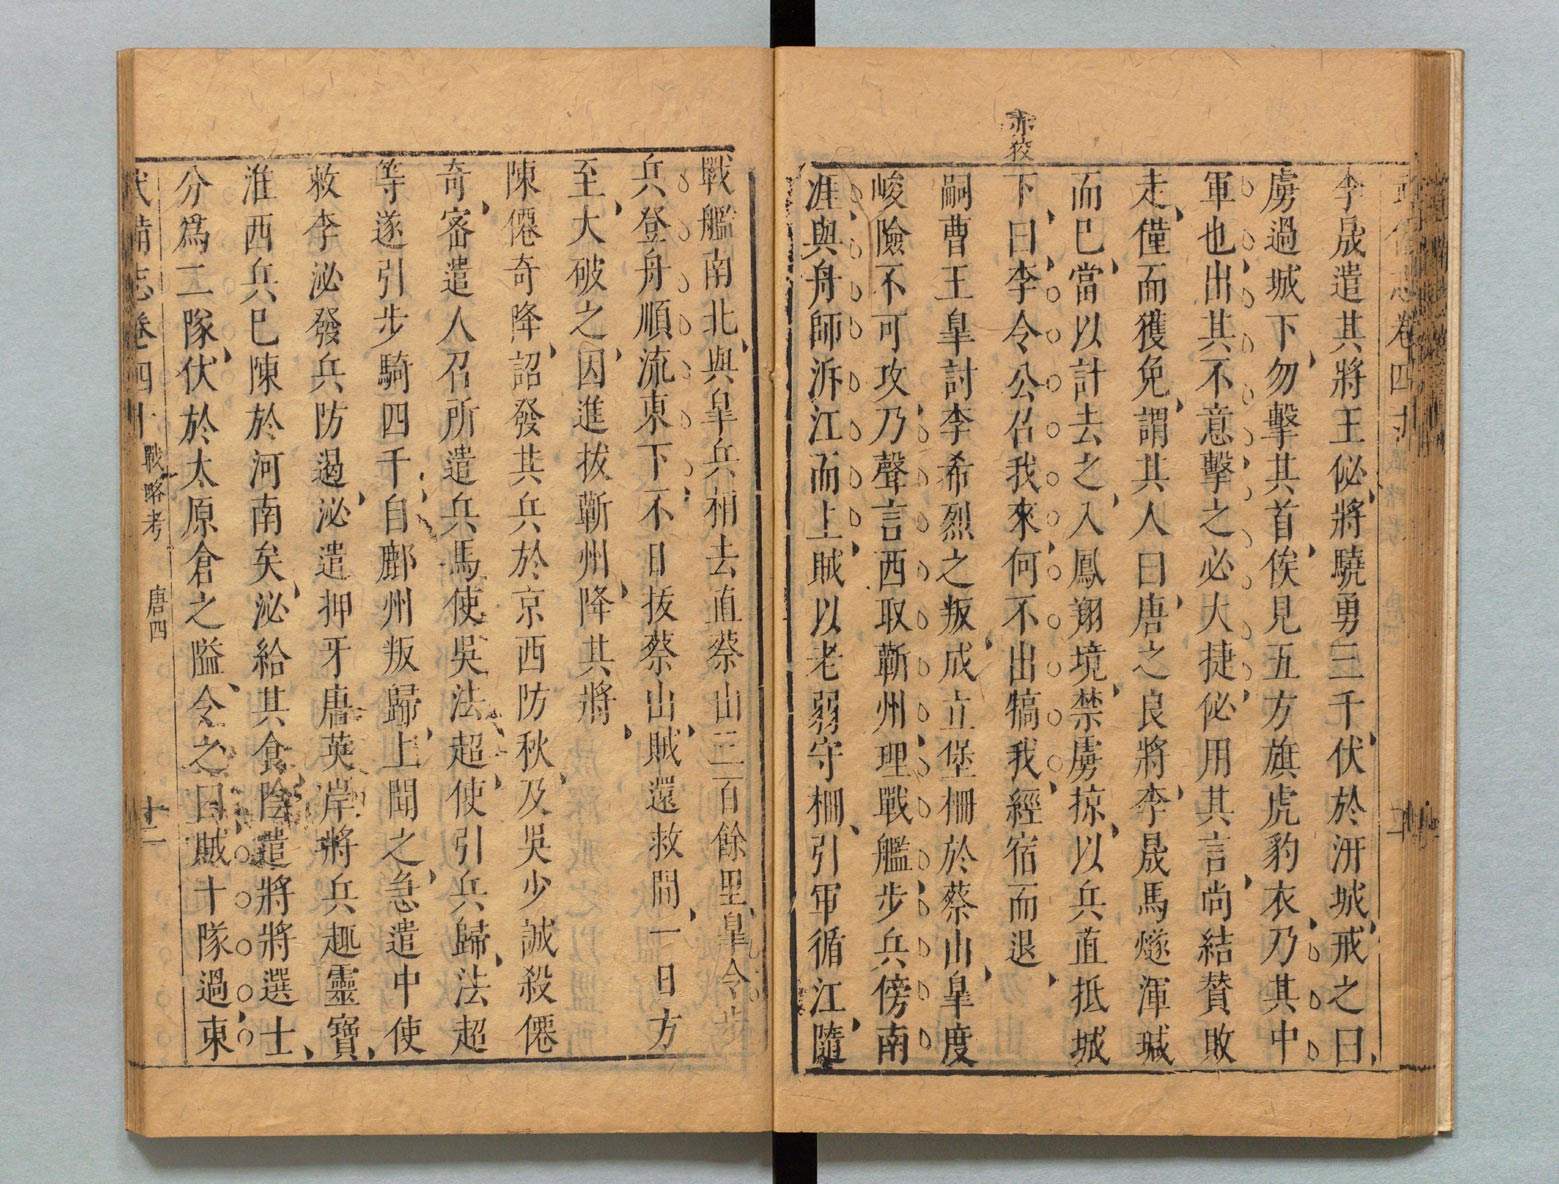 亦狡
李晟遣其將王佖將驍勇三千伏於汧城戒之曰
虜過城下勿擊其首俟見五方旗虎豹衣乃其中
軍也出其不意擊之必大捷佖用其言尚結贊敗
走僅而獲免謂其人曰唐之良將李晟馬燧渾瑊
而已當以計去之入鳳翔境禁虜掠以兵直抵城
下曰李令公召我來何不出犒我經宿而退
嗣曹王皐討李希烈之叛成立堡柵於蔡山皐度
峻險不可攻乃聲言西取蘄州理戰艦步兵傍南
涯與舟師泝江而上賊以老弱守柵引軍循江隨
戰艦南北與皐兵相去直蔡山三百餘里皐令步
兵登舟順流東下不日拔蔡山賊還救間一日方
至大破之因進拔蘄州降其將
陳僊奇降詔發其兵於京西防秋及吳少誠殺僊
奇密遣人召所遣兵馬使吳法超使引兵歸法超
等遂引步騎四千自鄜州叛歸上聞之急遣中使
敕李泌發兵防遏泌遣押牙唐英岸將兵趣靈寶
淮西兵已陳於河南矣泌給其食陰遣將將選士
分爲二隊伏於太原倉之隘令之曰賊十隊過東
武備志卷四十 戰略考 唐四 十二